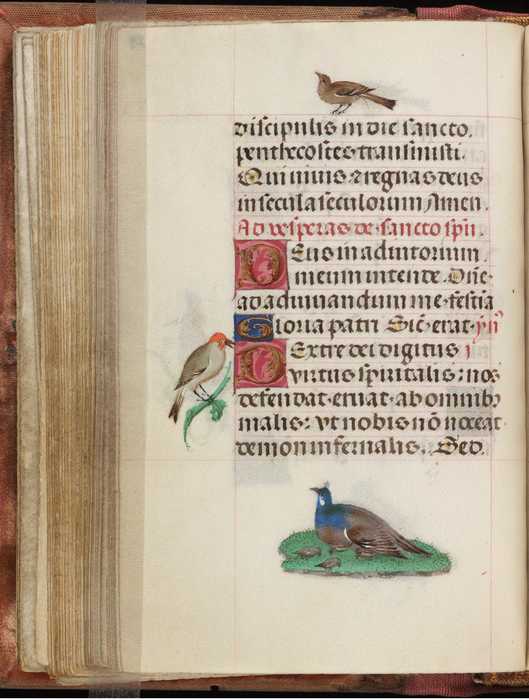 discipulis in die sancto.
penthecostes transmisti.
Qui vivis ⁊ regnas deus
in secula seculorum Amen.
Ad vesperas de sancto spũ.
Deus in adiutorium
meum intende. Dñe
ad adiuvandum me festia
Gloria patri Sic̃ erat ym̃
Dextre dei digitus
virtus spiritalis: nos
defendat eruat ab omnibꝫ
malis: vt nobis nõ noceat
demon infernalis. Sed.